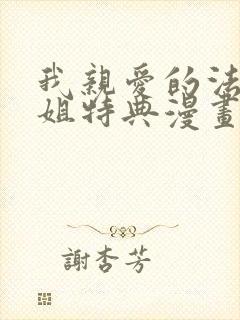 我親愛的法
姐特典漫畫
謝杏芳